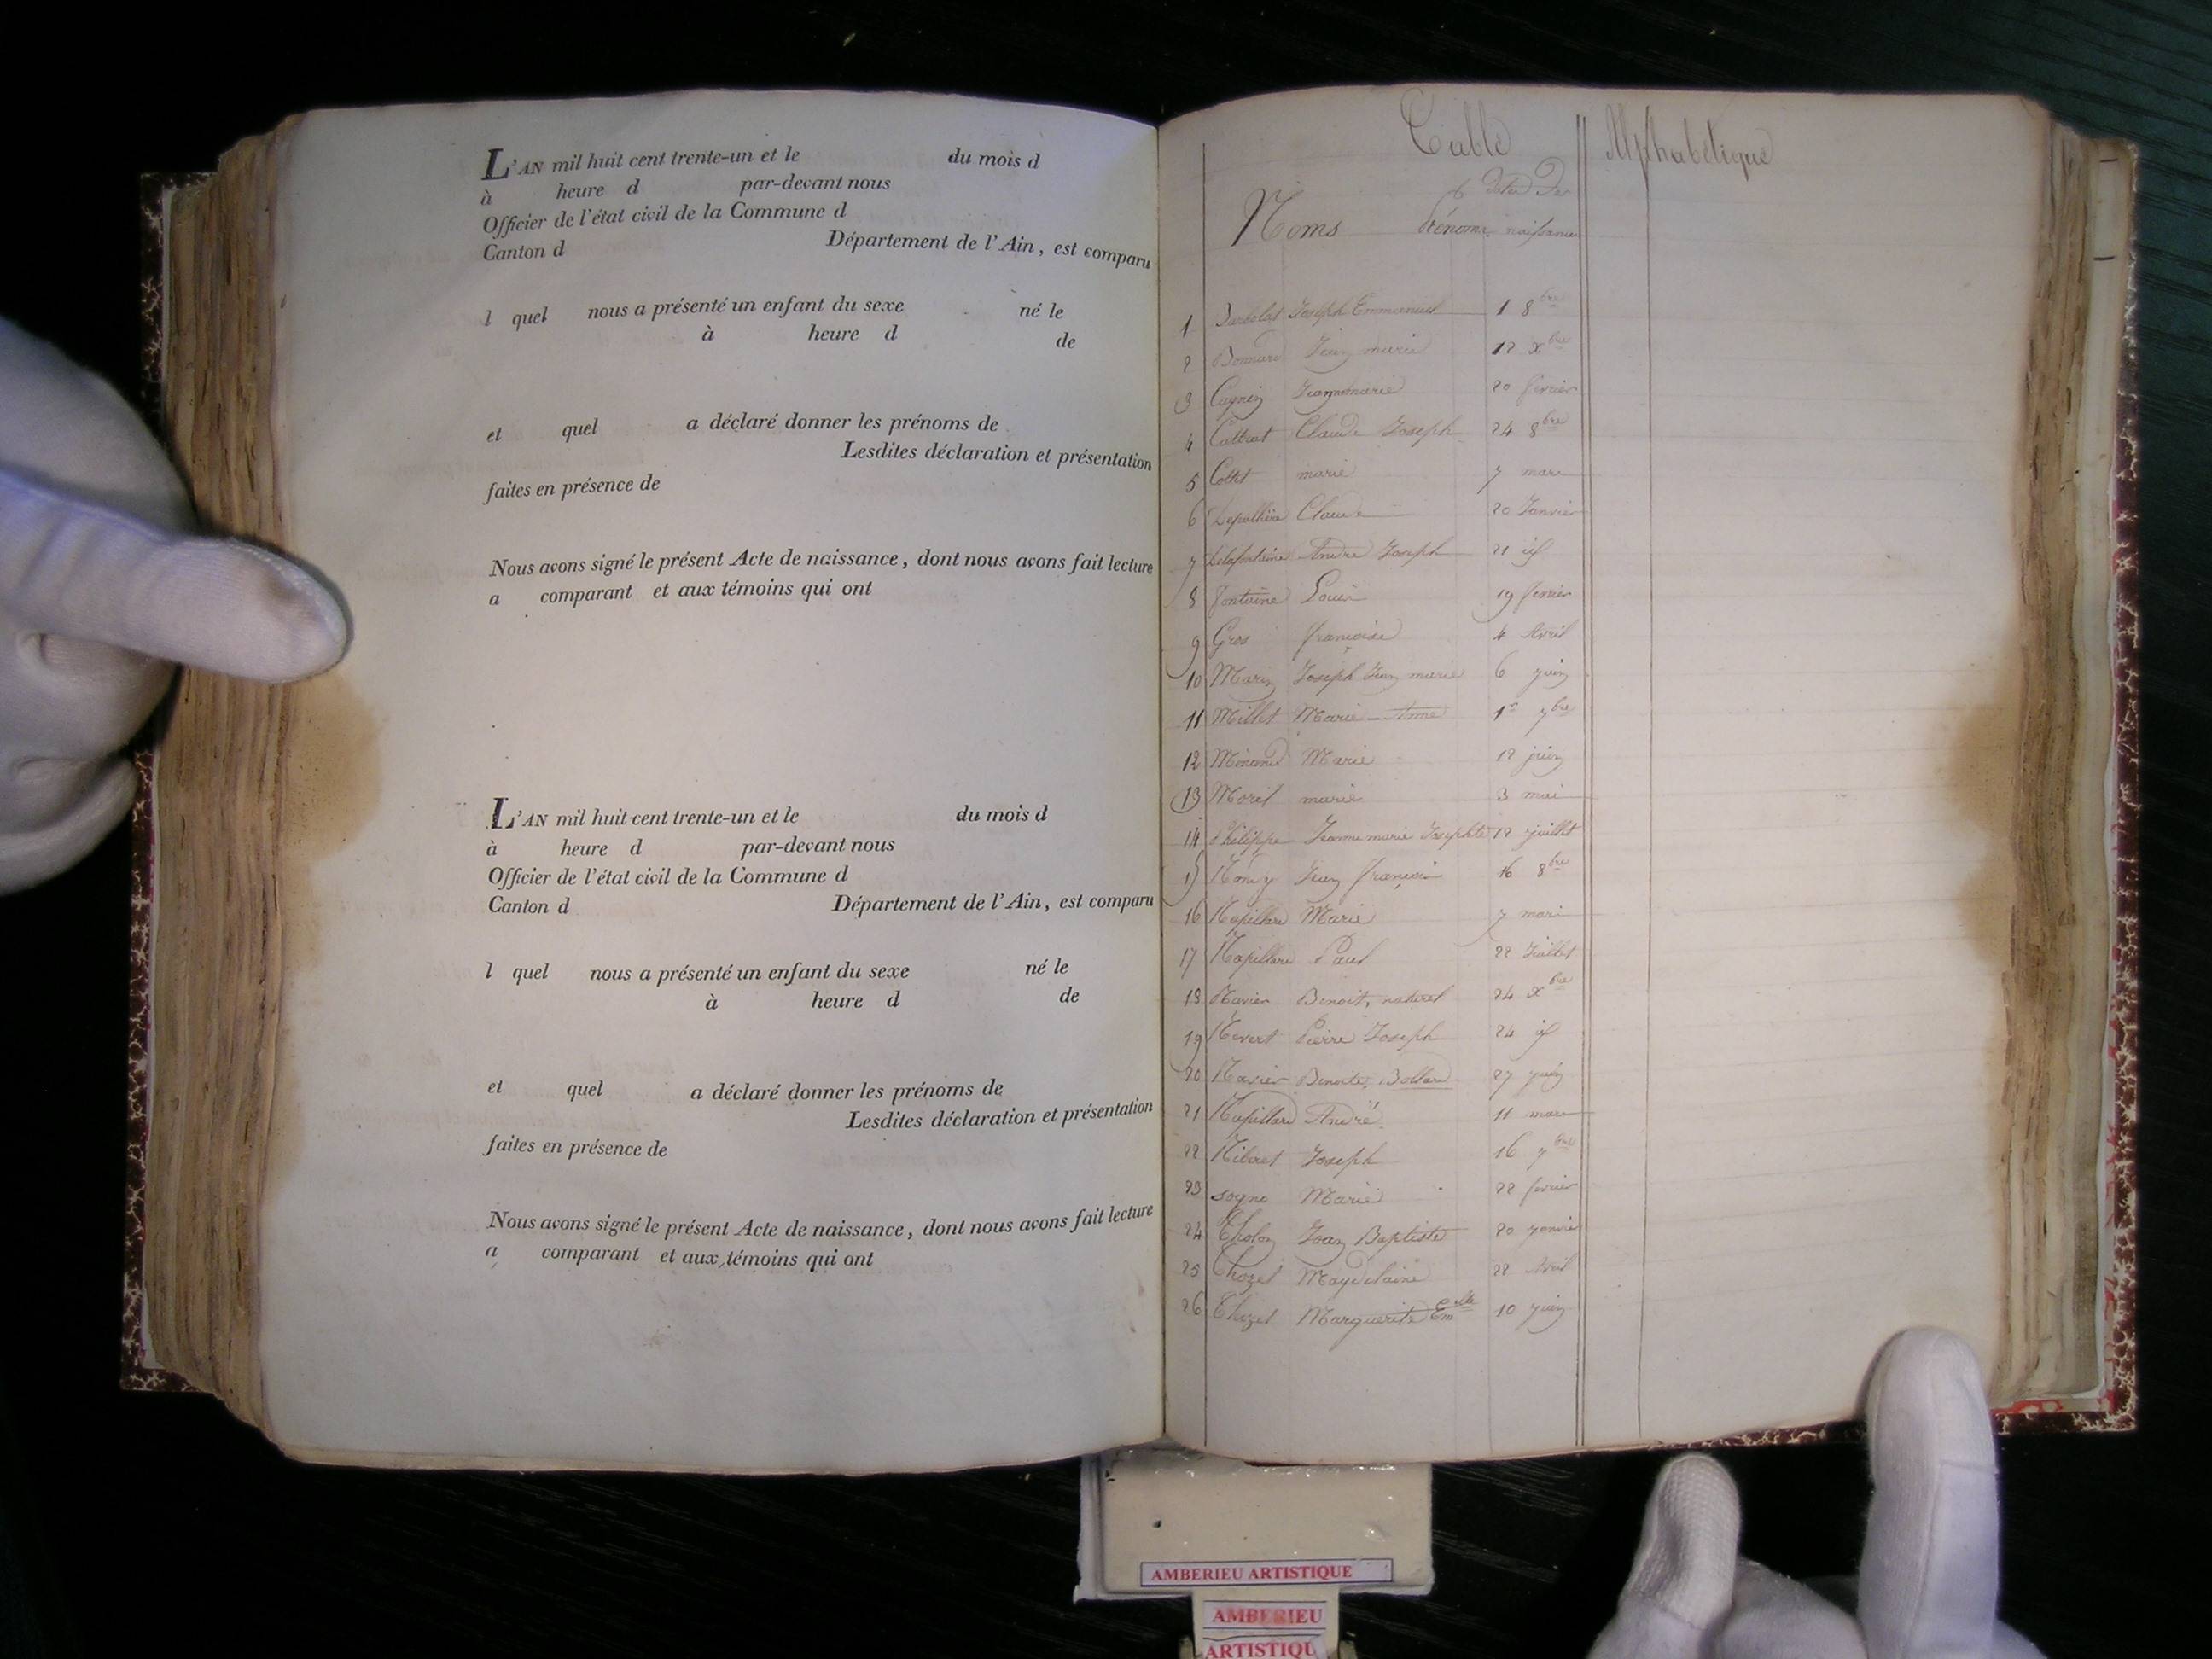 L'AN mil huit cent trente-un et le du mois d
à heure d par-devant nous
Officier de l'état civil de la Commune d
Canton d Département de l'Ain, est comparu
l quel nous a présenté un enfant du sexe né le
à heure d de
et quel a déclaré donner les prénoms de
Lesdites déclaration et présentation
faites en présence de
Nous avons signé le présent Acte de naissance, dont nous avons fait lecture
a comparant et aux témoins qui ont
L'AN mil huit cent trente-un et le du mois d
à heure d par-devant nous
Officier de l'état civil de la Commune d
Canton d Département de l'Ain, est comparu
l quel nous a présenté un enfant du sexe né le
à heure d de
et quel a déclaré donner les prénoms de
Lesdites déclaration et présentation
faites en présence de
Nous avons signé le présent Acte de naissance, dont nous avons fait lecture
a comparant et aux témoins qui ont
Table Alphabétique
Noms Prénoms naissance
1 Joseph Emmanuel 1 8bre
2 Bonnard Jean marie 12 xbre
3 Cagnin Jeanne marie 20 février
4 Claude Joseph 24 8bre
5 Collet marie 7 mars
6 Claude 20 Janvier
7 Delafontaine André Joseph 21 id
8 fontaine Louis 19 février
9 Gros françoise 4 Avril
10 Marin Joseph Jean marie 6 juin
11 Millet Marie-Anne 1er 7bre
12 Marie 12 juin
13 Morel marie 3 mai
14 Philippe Jeanne marie Josephte 12 juillet
15 Jean françois 16 8bre
16 Rapillard Marie 7 mars
17 Rapillard Paul 22 Juillet
18 Ravier Benoit, naturel 24 xbre
19 Revert Pierre Joseph 24 id
20 Ravier Benoite, 27 juin
21 Rapillard André 11 mars
22 Joseph 16 7bre
23 Marie 22 février
24 Tholon Jean Baptiste 20 janvier
25 Thozet Magdelaine 22 Avril
26 Thozet Marguerite 10 juin
AMBERIEU ARTISTIQUE
AMBERIEU
ARTISTIQU